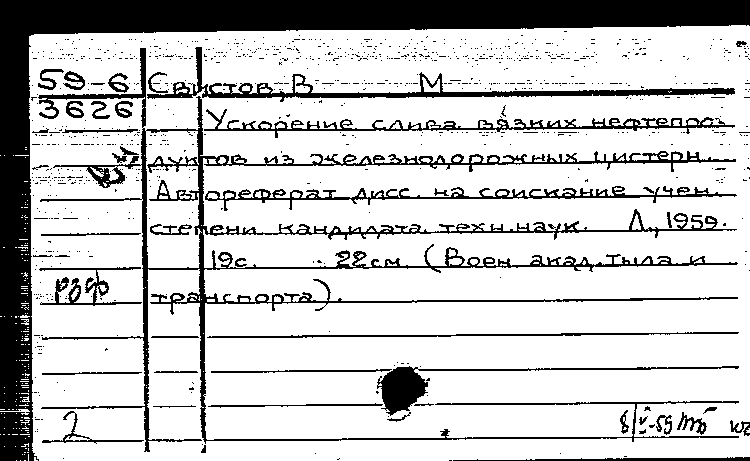 59-6 Свистов, В М
3626
Ускорение слива вязких нефтепро-
дуктов из железнодорожных цистерн.
Автореферат дисс. на соискание учен.
степени кандидата техн. наук. Л., 1959.
19с. 22см. (Воен. акад. тыла и
транспорта).
2